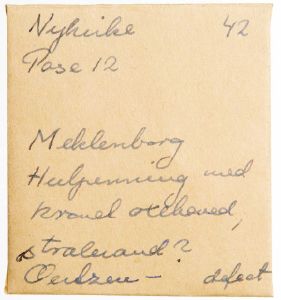 Nykirke 42
Pose 12
Meklenborg
Hulpenning med
kronet oxehoved,
stralrand?
Oertzen - defect